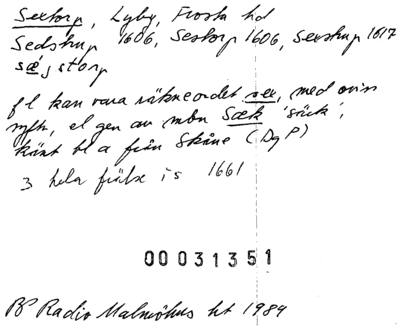 Sextorp, Lyby, Frosta hd
Sedstrup 1606, Sestorp 1606, Sexstrup 1617
sæjstorp
fl kan vara räkneordet sex, med oviss
syft, el gen av mbn Sæk 'säck',
känt bl a från Skåne (DgP)
3 hela frälse is 1661
00031351
BP Radio Malmöhus ht 1984